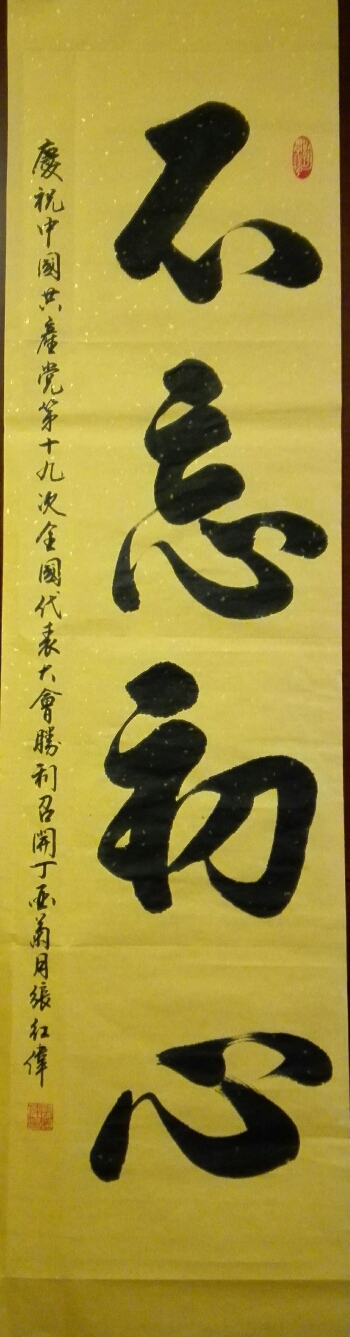 不忘初心
慶祝中國共產党第十九次全國代表大會勝利召開丁酉菊月張红偉